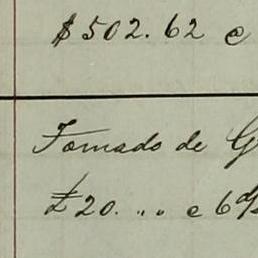 $502.62 e
Tomado de G
£20. „ „ e 6 d/